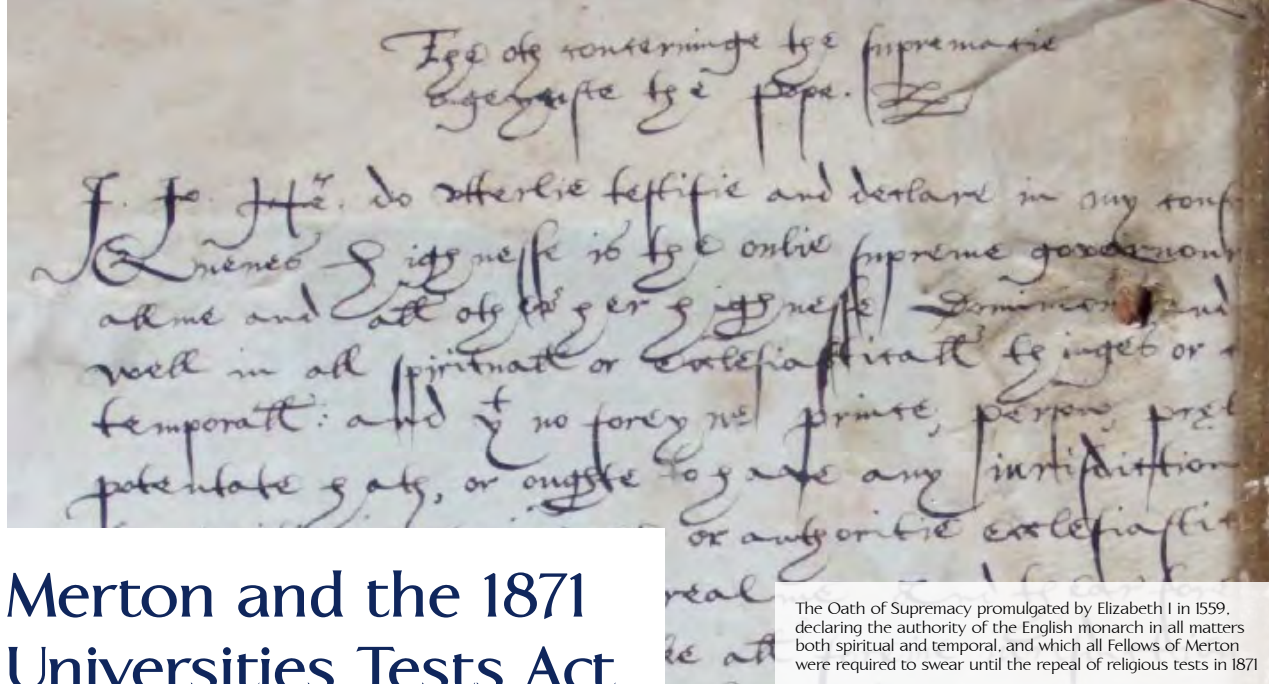 The oth concerninge the supremacie
ageynste the pope.
I. Jo. He. do utterlie testifie and declare in my
Quenes Highnesse is the onlie supreme governour
alme and all other her highnesse Dominions and
well in all spirituall or ecclesiasticall thinges or
temporall: and yt no foreyne prince, person,
potentate hath, or oughte to have any iurisdiction
or authoritie
real
all
Merton and the 1871
Universities Tests Act
The Oath of Supremacy promulgated by Elizabeth I in 1559,
declaring the authority of the English monarch in all matters
both spiritual and temporal, and which all Fellows of Merton
were required to swear until the repeal of religious tests in 1871